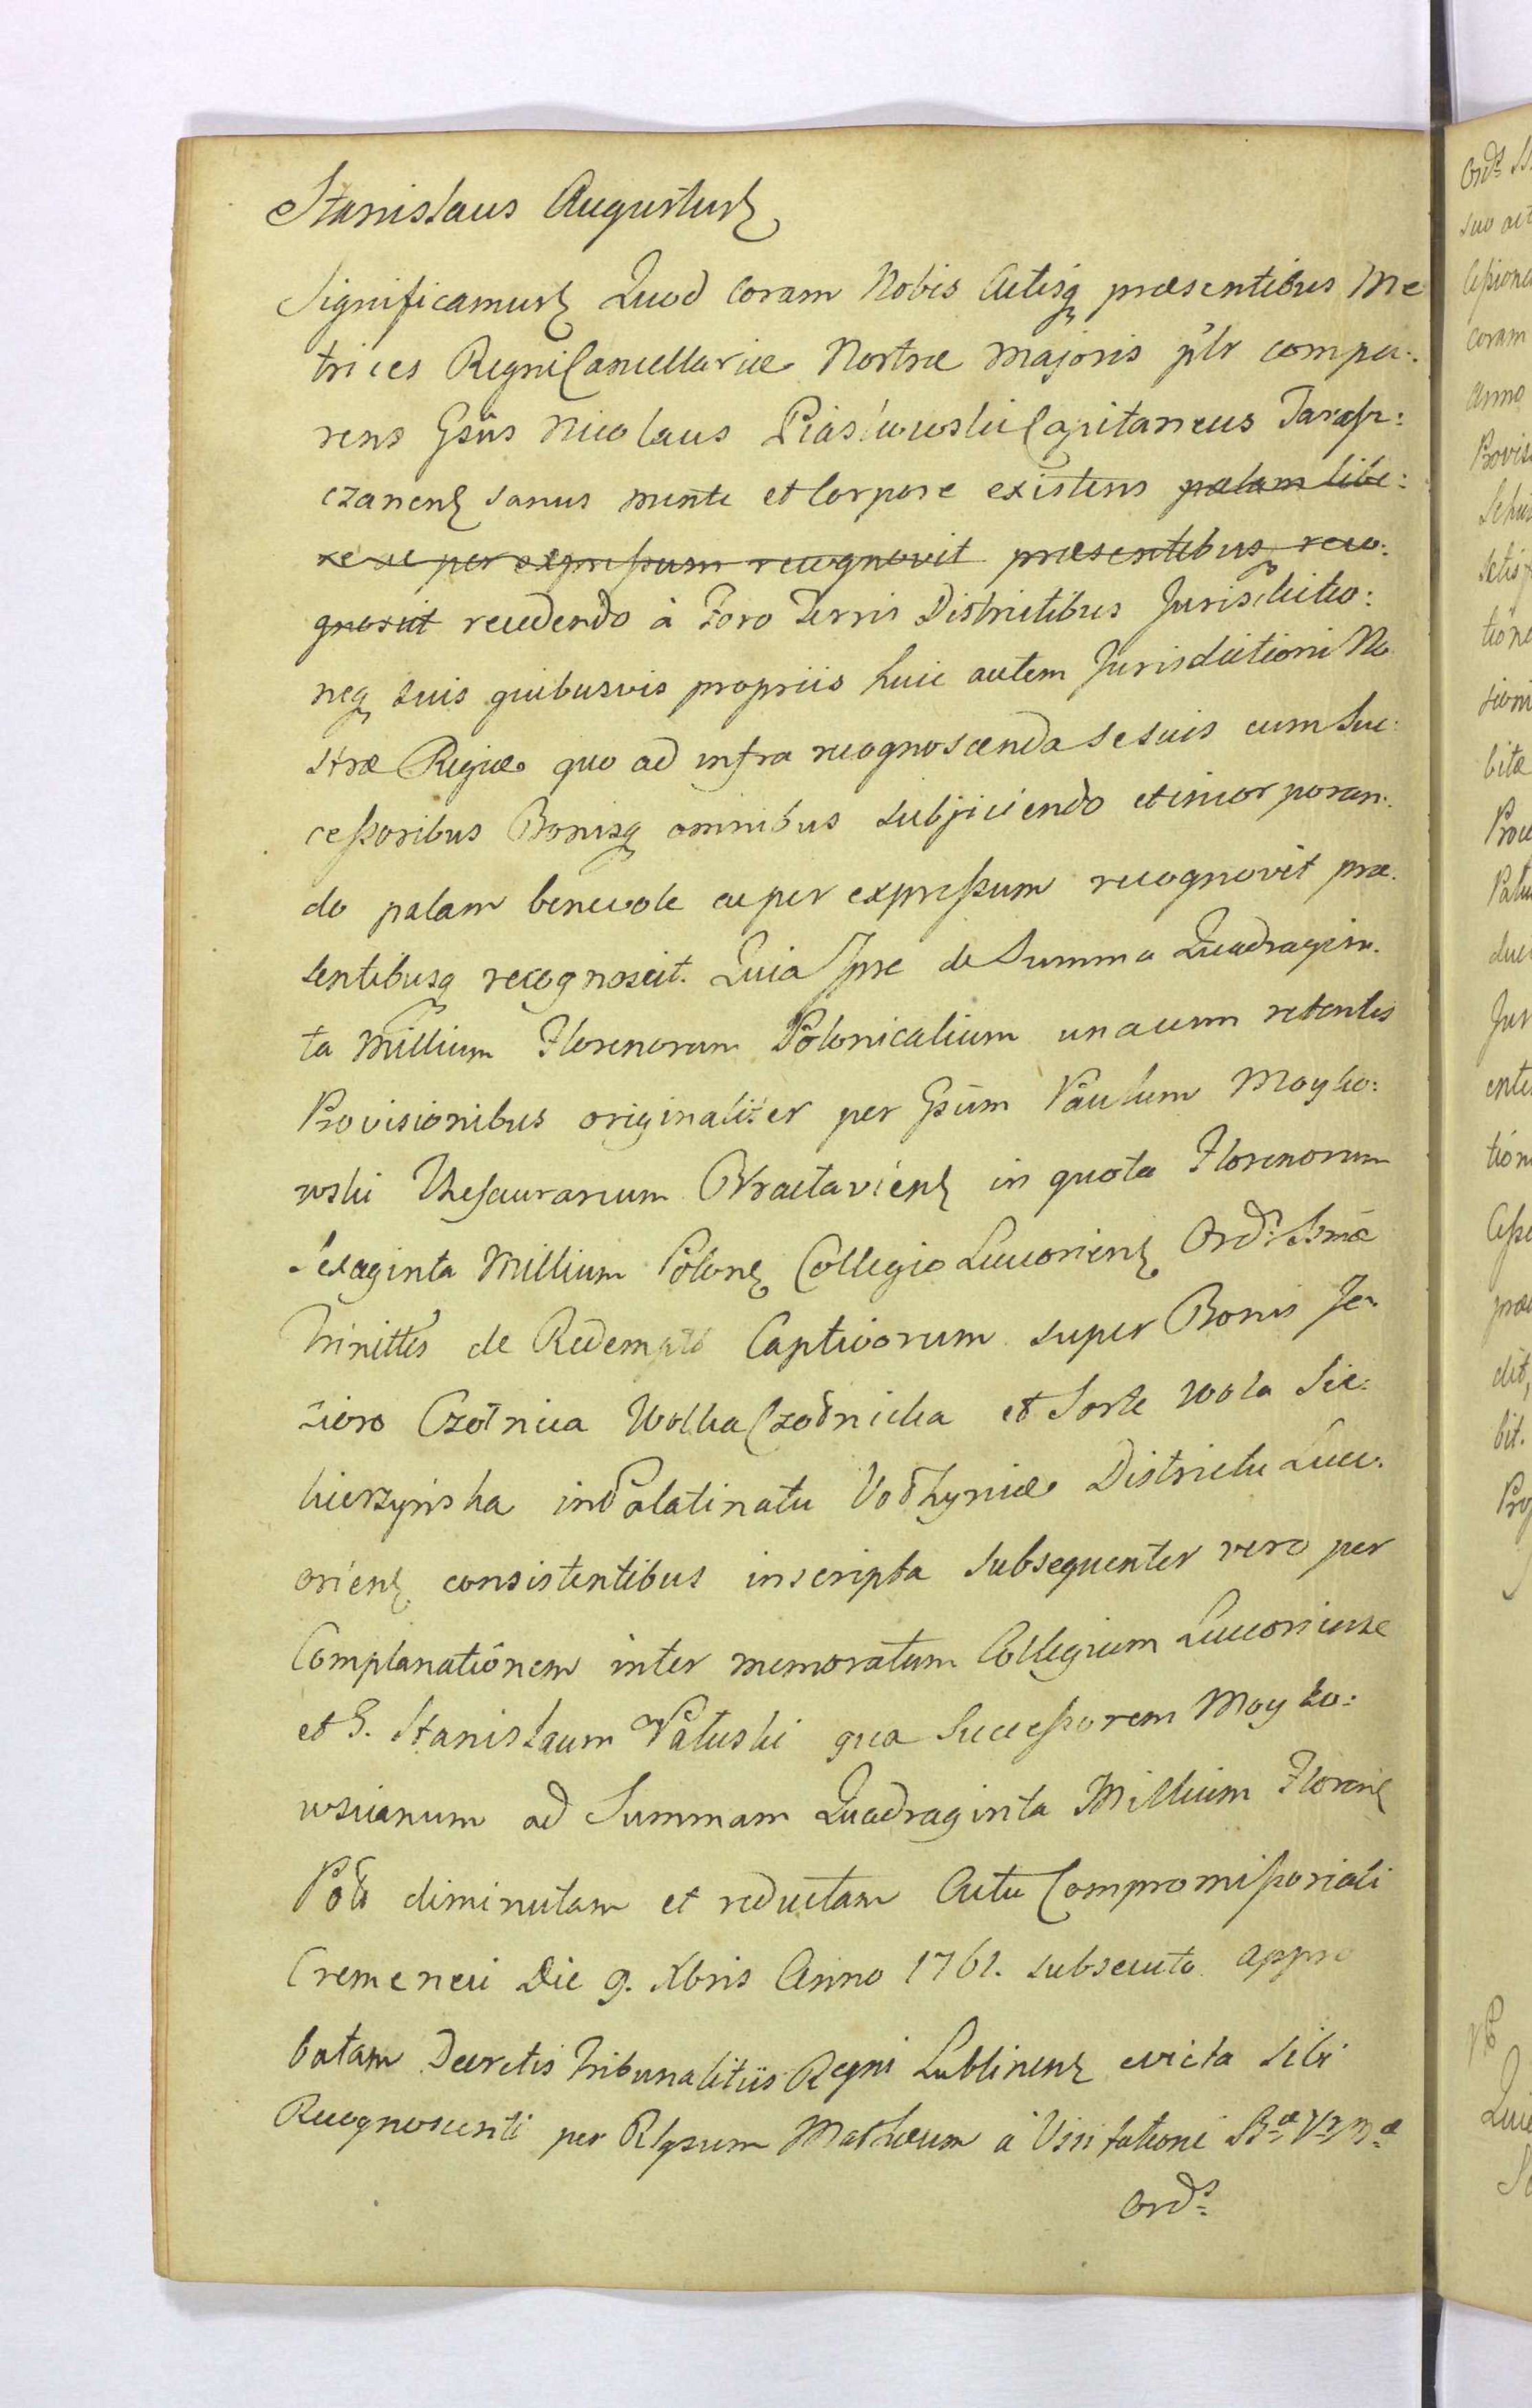 Stanislaus Augustus
Significamus Quod Coram Nobis Actisq praesentibus Me
trices Regni Cancellariae Nostrae Majoris plr compa:
rens Gsus Nicolaus Piaskowski Capitaneus Tarasz:
czanen sanus mente et Corpore existens palam libe:
re ac per expressum recognovit praesentibus reco:
gnoscit recedendo à Foro Terris Districtibus Jurisdictio:
neq suis quibusvis propriis huic autem Jurisdictioni No
strae Regiae quo ad infra recognoscenda se suis cum Suc:
cessoribus Bonisq omnibus subjiciendo et incorporan:
do palam benevole ac per expressum recognovit prae:
sentibusq recognoscit. Quia Ipse de Summa Quadragin:
ta Millium Florenorum Polonicalium unacum retentis
Provisionibus originaliter per Gsum Paulum Mayko:
wski Thesaurarium Bractavien in quota Florenorum
Sexaginta Millium Polon Collegio Luceorien Ord: Ssmae
Trinittis de Redempte Captivorum super Bonis Je
zioro Czołnica Wolka Czołnicka et Sorte Wola Sie:
kierzynska in Palatinatu Volhyniae Districtu Luce:
orien consistentibus inscripta subsequenter vero per
Complanationem inter memoratum Collegium Luceoriense
et G. Stanislaum Pałuski qua Successorem Mayko:
wscianum ad Summam Quadraginta Millium Floren
Pol diminutam et reductam Actu Compromissoriali
Cremeneci Die 9. Xbris Anno 1761. subsecuto appro
batam Decretis Tribunalitiis Regni Lublinen evicta Sibi
Recognoscenti per Rlgsum Mathaeum a Visitatione Bae Vnis Mae
Ords

Ords
suo act
Cessione
coram
Anno
tione
sioni
bitae
Jur
tion
dit,
bit.